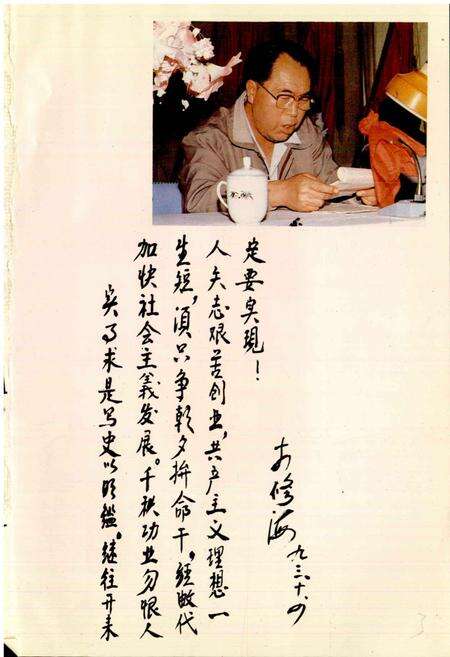 实事求是写史以明鑑，继往开来
加快社会主義发展。千秋功业勿恨人
生短，須只争朝夕拚命干，經数代
人矢志艰苦创业，共产主义理想一
定要实現！
修海
九三.十.四